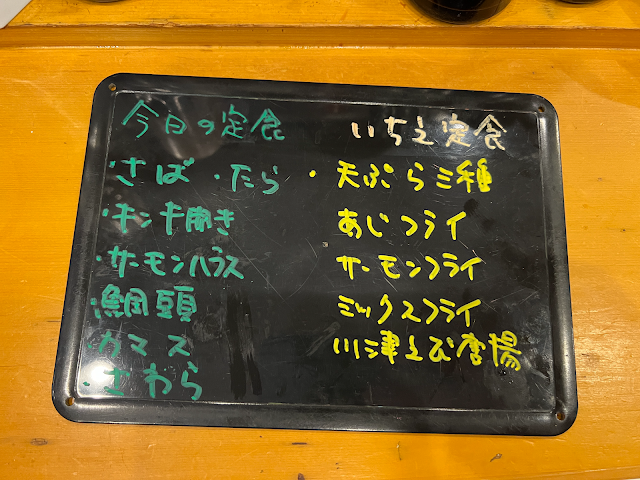 今日の定食
・さば ・たら
・キンキ開き
・サーモンハラス
・鯛頭
・カマス
・さわら
いちえ定食
・天ぷら三種
あじフライ
サーモンフライ
ミックスフライ
川津えび唐揚